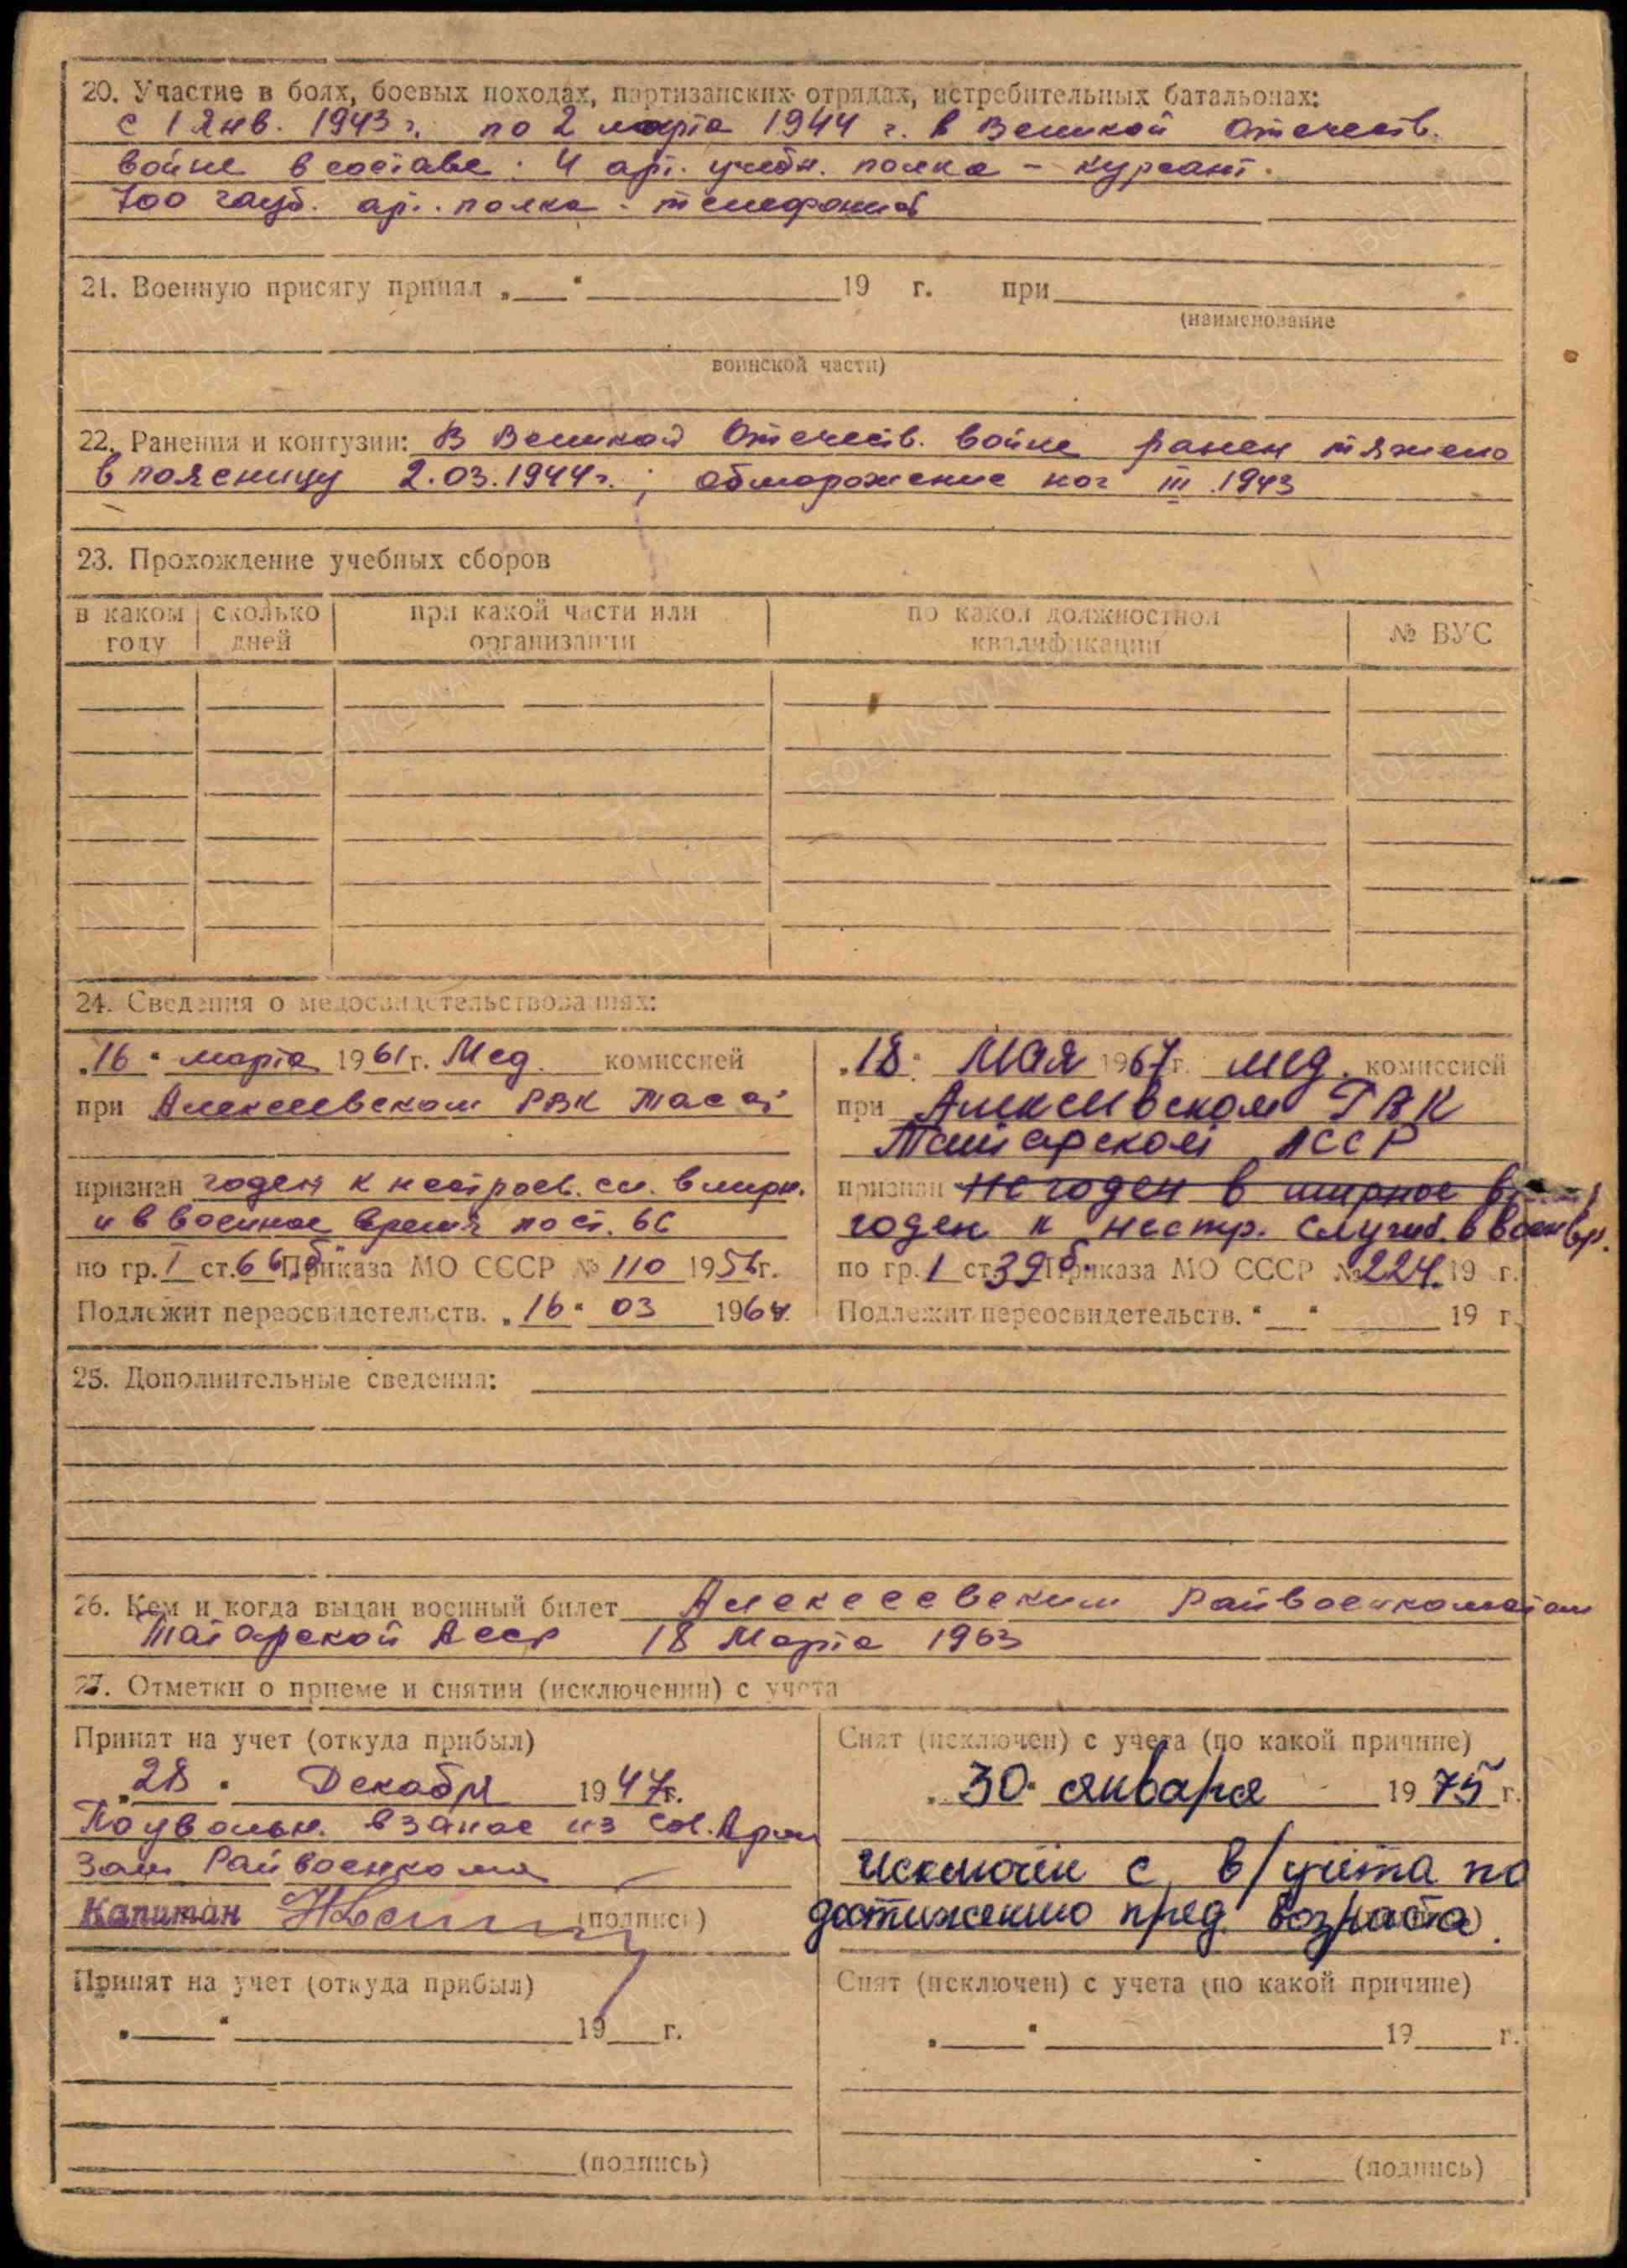 20. Участие в боях, боевых походах, партизанских отрядах, истребительных батальонах:
с 1 Янв. 1943 г. по 2 марта 1944 г. в Великой Отечеств.
войне в составе: 4 арт. учебн. полка – курсант.
700 гауб. арт. полка – телефонист
21. Военную присягу принял „ “ 19 г. при
(наименование
воинской части)
22. Ранения и контузии: В Великой Отечеств. войне ранен тяжело
в поясницу 2.03.1944г.; обморожение ног III.1943
23. Прохождение учебных сборов
в каком году
сколько дней
при какой части или организации
по какой должностной квалификации
№ ВУС
24. Сведения о медосвидетельствованиях:
„16“ марта 1961 г. Мед. комиссией
при Алексеевском РВК ТАССР
признан годен к нестроев. сл. в мирн.
и в военное время по ст. 66
по гр. I ст. 66 „б“ Приказа МО СССР № 110 1956 г.
Подлежит переосвидетельств. „16“ 03 1964
„18“ МАЯ 1967 г. мед. комиссией
при Алексеевском РВК
Татарской АССР
признан не годен в мирное
годен к нестр. служб. в воен вр.
по гр. 1 ст. 39 б. Приказа МО СССР № 224. 19 г.
Подлежит переосвидетельств. “ “ 19 г.
25. Дополнительные сведения:
26. Кем и когда выдан военный билет Алексеевским Райвоенкоматом
Татарской АССР 18 Марта 1963
27. Отметки о приеме и снятии (исключении) с учета
Принят на учет (откуда прибыл)
„28“ Декабря 1947 г.
По увольн. в запас из Сов. Арм
Зам Райвоенкома
Капитан (подпись)
Снят (исключен) с учета (по какой причине)
„30“ января 1975 г.
исключен с в/учета по
достижению пред. возраста.
Принят на учет (откуда прибыл)
„ “ 19 г.
(подпись)
Снят (исключен) с учета (по какой причине)
„ “ 19 г.
(подпись)